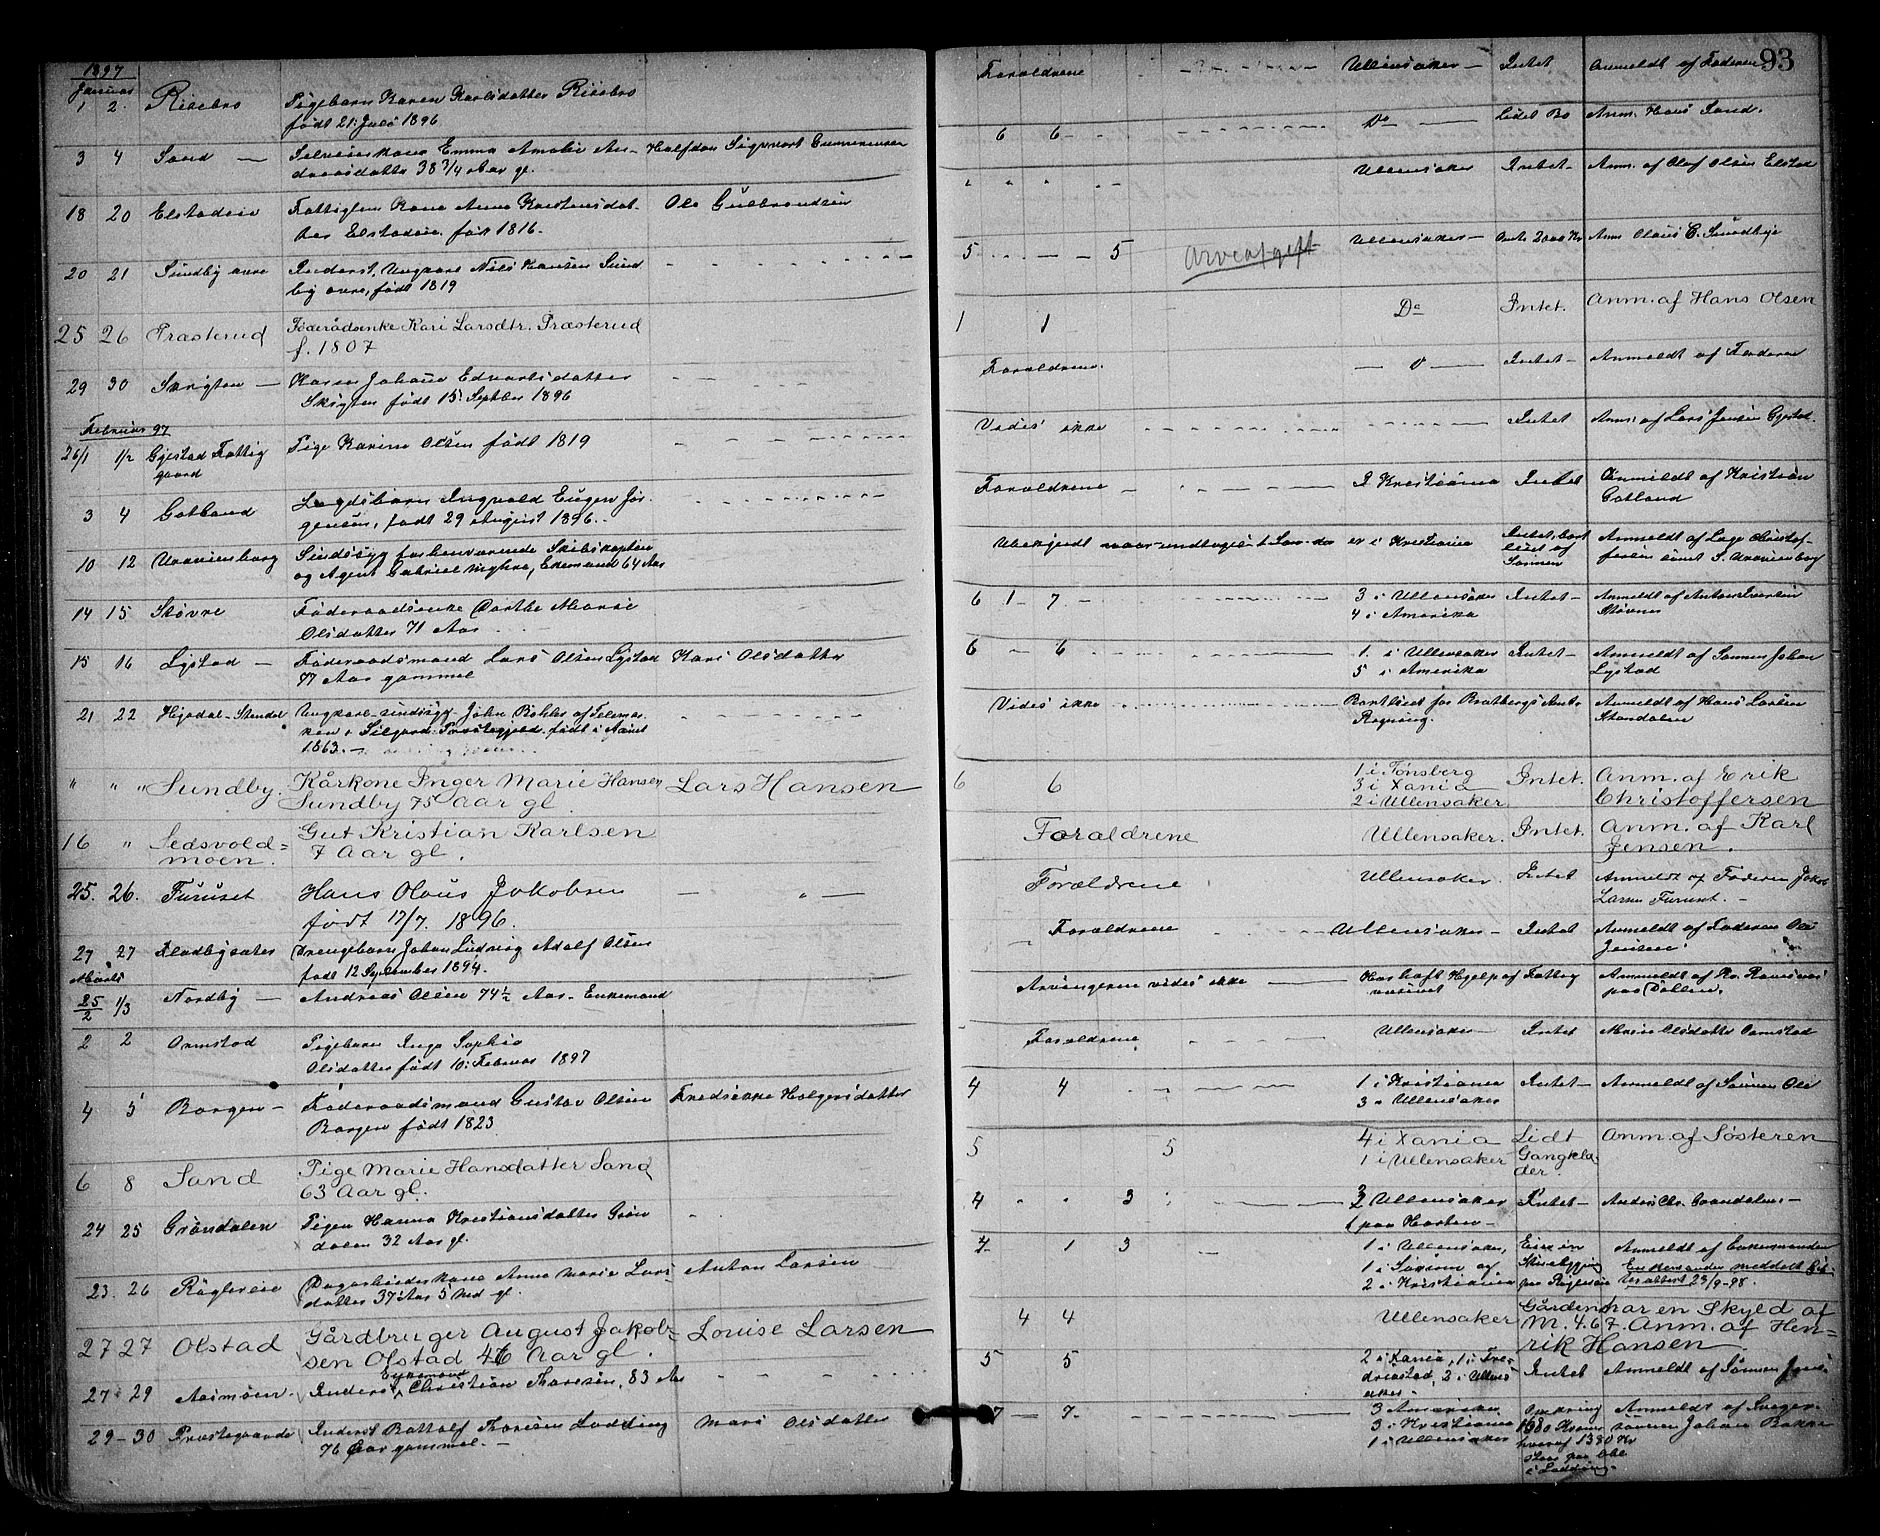 93
1897
Januar
1 2 Risebro Pigebarn Karen Karlsdatter Risebro
født 21: Juli 1896
Forældrene Ullensaker Intet Anmeldt af Faderen
3 4 Sand Emma Amalie An- Halfdan Sigvart Gunnerussen
dreasdatter 38 3/4 Aar gl.
6 6 Do Lidet Bo Anm. Hans Sand.
18 20 Elstadeie Fattiglem Kone Anna Kristensdat- Ole Gulbrandsen
ter Elstadeie, født 1816.
Ullensaker Intet Anm. af Olaf Olsen Elstad
20 21 Sundby øvre Inderst, Ungkarl Nils Hansen Sund
by øvre, født 1819
5 5 Arveafgift Ullensaker 2000 Kr Anm. Claus E. Sundbye
25 26 Præsterud Føderådsenke Kari Larsdtr. Præsterud
f. 1807
1 1 Do Intet. Anm. af Hans Olsen
29 30 Skrigten Karen Johane Edvartsdatter
født 15: Septbr 1896
Forældrene. Intet Anmeldt af Faderen
Februar 97
26/1 1/2 Gystad Fattig Pige Karine Olsen født 1819
gaard
Vides ikke Intet Anm: af Lars Jensen Gystad.
3 4 Gotland Lægdsbarn Ingvald Eugen Jør-
gensen, født 29 August 1896.
Forældrene I Kristiania Intet Anmeldt af Kristian
Gotland
10 12 Uranienborg Sindssyg forhenværende Skibskaptein
og Agent Gabriel Enkemand 64 Aar
Ubekjendt er i Kristiania Anmeldt af
Sønnen Uranienborg
14 15 Støvre Føderaadsenke Dorthe Marie
Olsdatter 71 Aar
6 1 7 3 i Ullensaker Intet Anmeldt af Anton
4 i Amerika
15 16 Lystad Føderaadsmand Lars Olsen Lystad Kari Olsdatter
77 Aar gammel
6 6 1 i Ullensaker Intet Anmeldt af Sønnen Johan
5 i Amerika Lystad
21 22 Hijsdal-Stendal Ungkarl-sindssyg John af Telemar-
ken i Siljord Præstegjeld. født i Aaret
1863.
Vides ikke Anmeldt af Hans Larsen
Regning.
" " " Sundby. Kårkone Inger Marie Hansen Lars Hansen
Sundby 75 Aar gl
6 6 1 i Tønsberg Intet. Anm. af Erik
3 i Xania Christoffersen
2 i Ullensaker
16 " Sedsvold= Gut Kristian Karlsen
moen. 7 Aar gl.
Forældrene Ullensaker. Intet. Anm. af Karl
Jensen.
25. 26. Furuset Hans Olaus Jakobsen
født 17/7. 1896.
Forældrene Ullensaker. Intet Anmeldt af Faderen Jakob
Larsen Furuset.
27 27 Kladbysæter Drengebarn Johan Ludvig Adolf Olsen
født 12 September 1894.
Forældrene Ullensaker Intet Anmeldt af Faderen Ole
Jensen
Marts
25/2 1/3 Nordby Andreas Olsen 74 1/2 Aar Enkemand
Arvingerne vides ikke Har haft Hjelp af Fattig Anmeldt af
væsenet paa Døhlen.
2 2 Ormstad Pigebarn Inga Sophie
Olsdatter født 10: Februar 1897
Forældrene Ullensaker Intet Marie Olsdatter Ormstad
4 5 Borgen Føderaadsmand Gustav Olsen Fredrikke Holgersdatter
Borgen født 1823
4 4 1 i Kristiania Intet Anmeldt af Sønnen Ole
3 " Ullensaker
6 8 Sand Pige Marie Hansdatter Sand
63 Aar gl.
5 5 4 i Xania Lidt Anm. af Søsteren
1 i Ullensaker Gangklæ
der.
24 25 Grøndalen Pigen Hanna Kristiansdatter Grøn
dalen 32 Aar gl.
4 3 3 Ullensaker Intet Anders Chr. Grøndalen
1 paa Hadeland
23. 26 Røgleneie Dagarbeiderkone Anna Marie Lars Anton Larsen
datter 37 Aar 5 Md gl.
4 1 3 1 i Ullensaker, Eier en Anmeldt af Enkemanden
1 i og Enkemanden meddelt
2 i Kristiania 23/9-98.
27 27 Olstad Gårdbruger August Jakob= Louise Larsen
sen Olstad 46 Aar gl.
4 4 Ullensaker Gården har en Skyld af
M. 4.67. Anm. af Hen=
rik Hansen
27 29 Aasmoen. Inderst Enkemand Christian Thoresen, 83 Aar
5 5 2 i Xania, 1 i Fre- Intet Anmeldt af Sønnen
driksstad, 2 i Ullens
aker
29-30 Præstegaarden Inderst Thoresen Lodding Mari Olsdatter
76 Aar gammel.
7 7 3 Amerika Omkring Anmeldt af Sviger
3 i Kristiania 1980 Kroner sønnen Johan Bakke
1 i Ullensaker hvoraf 1380 Kr